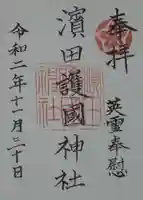 奉拝
英霊奉慰
濱田護國神社
令和二年十一月二十日